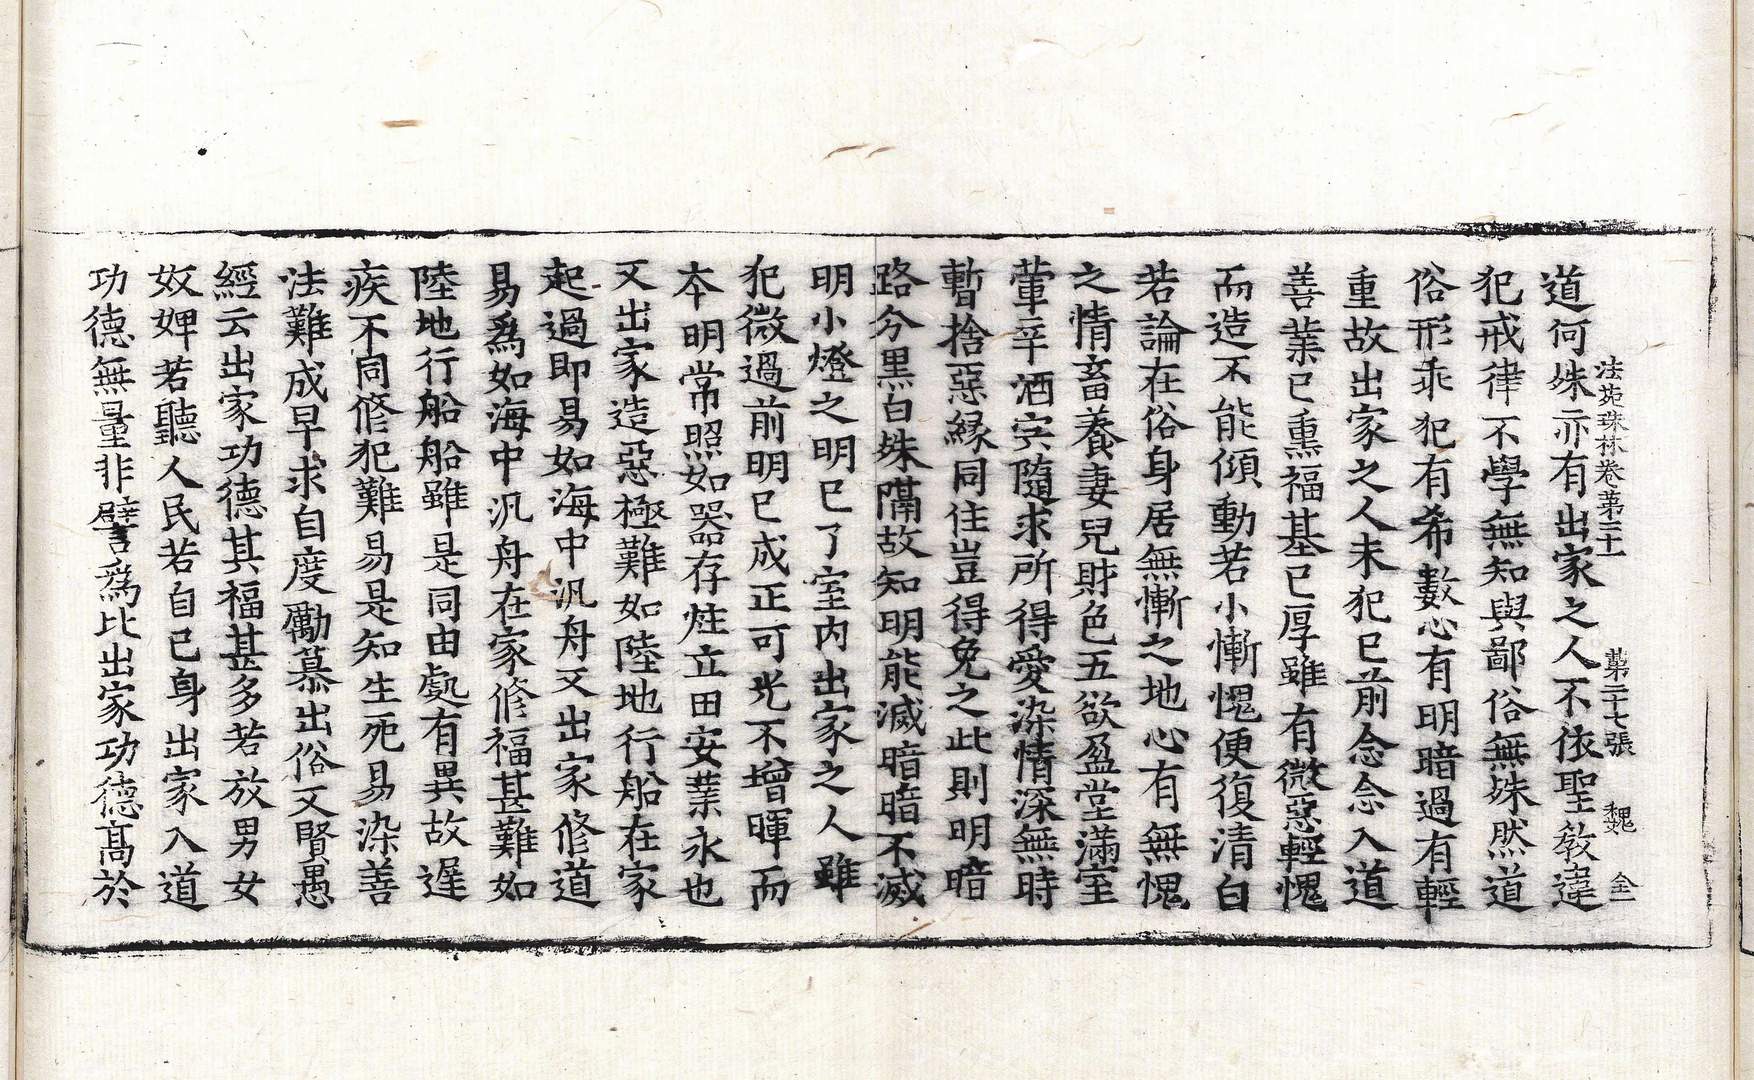 法苑珠林卷苐二十二　苐二十七張　魏　全
道何殊亦有出家之人不依聖教違
犯戒律不學無知與鄙俗無殊然道
俗形乖犯有希數心有明暗過有輕
重故出家之人未犯已前念念入道
善業已熏福基已厚雖有微惡輕愧
而造不能傾動若小慚愧便復清白
若論在俗身居無慚之地心有無愧
之情畜養妻兒財色五欲盈堂滿室
葷辛酒宍隨求所得愛染情深無時
暫捨惡緣同住豈得免之此則明暗
路分黑白殊隔故知明能滅暗暗不滅
明小燈之明已了室內出家之人雖
犯微過前明已成正可光不增暉而
本明常照如器存炷立田安業永也
又出家造惡極難如陸地行船在家
起過即易如海中汎舟又出家修道
易爲如海中汎舟在家修福甚難如
陸地行船船雖是同由處有異故遲
疾不同修犯難易是知生死易染善
法難成早求自度勵慕出俗又賢愚
經云出家功德其福甚多若放男女
奴婢若聽人民若自己身出家入道
功德無量非譬爲比出家功德高於